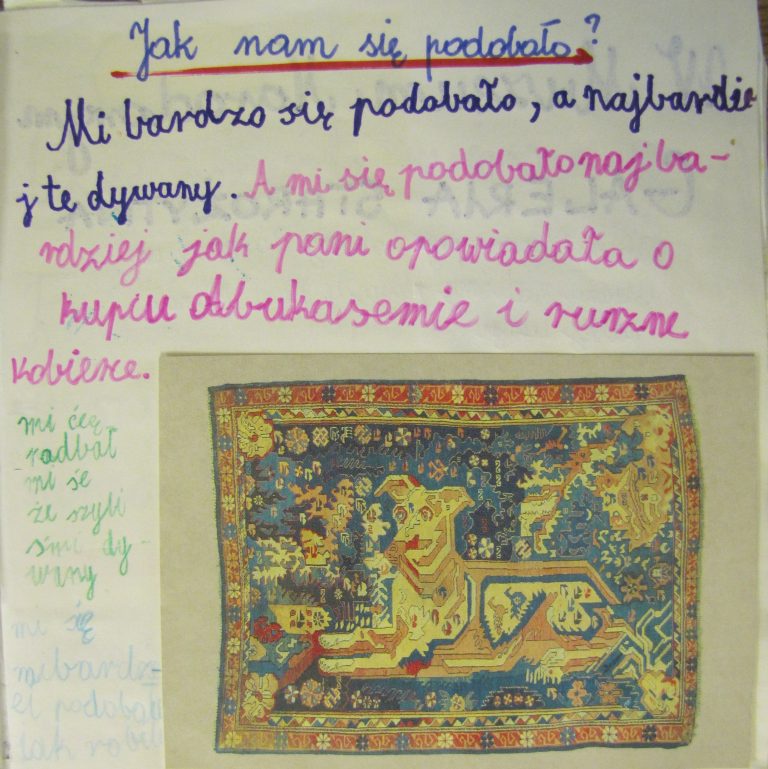 Jak nam się podobało?
Mi bardzo się podobało, a najbardzie
j te dywany. A mi się podobało najba-
rdziej jak pani opowiadała o
kupcu Abukasemie i rurzne
kobierce.
mi ćeę
radbał
mi śe
że szyli
śmi dy-
wany
mi się
podobało